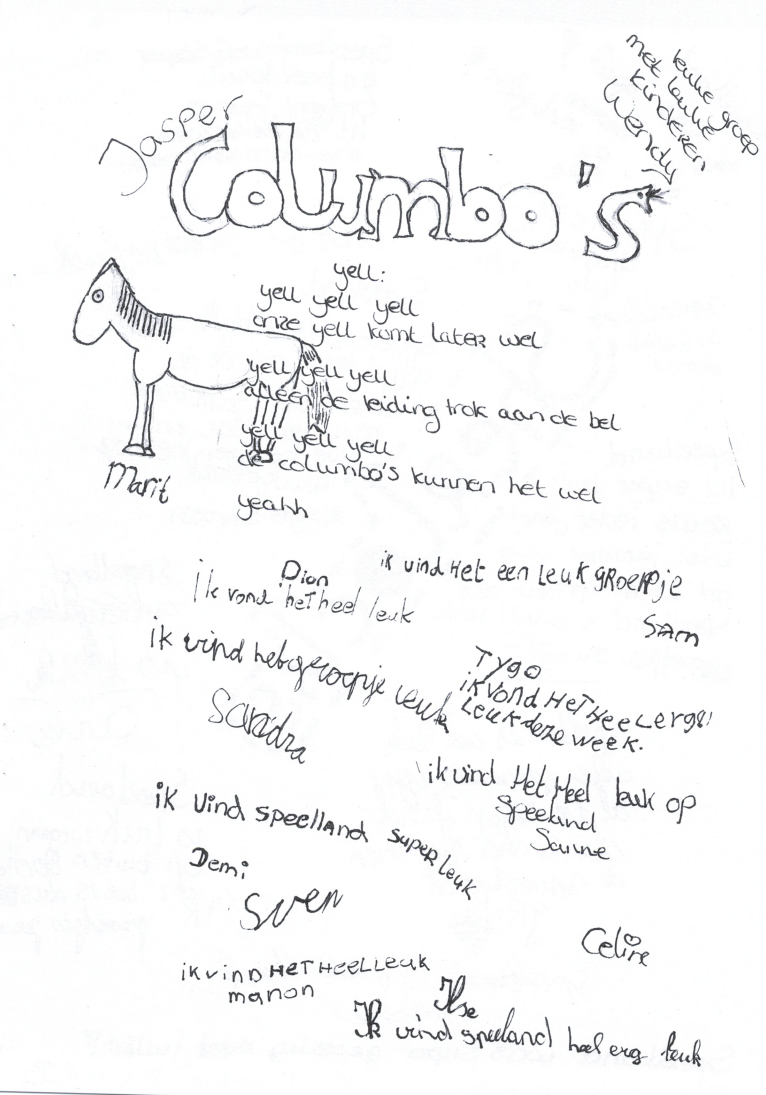 Jasper
leuke groep
met leuke
kinderen
Wendy
Columbo's
yell:
yell yell yell
onze yell komt later wel
yell yell yell
alleen de leiding trok aan de bel
yell yell yell
de columbo's kunnen het wel
yeahh
Marit
ik vind Het een leuk gRoepje
Sam
Dion
ik vond het heel leuk
ik vind het groepje leuk
Sandra
Tygo
ik vond Het Heel erg
Leuk deze week.
ik vind Het Heel leuk op
Speelland
Sanne
ik vind speelland super leuk
Demi
Sven
Celine
ik vind Het Heel Leuk
manon
Ilse
Ik vind speeland heel erg leuk